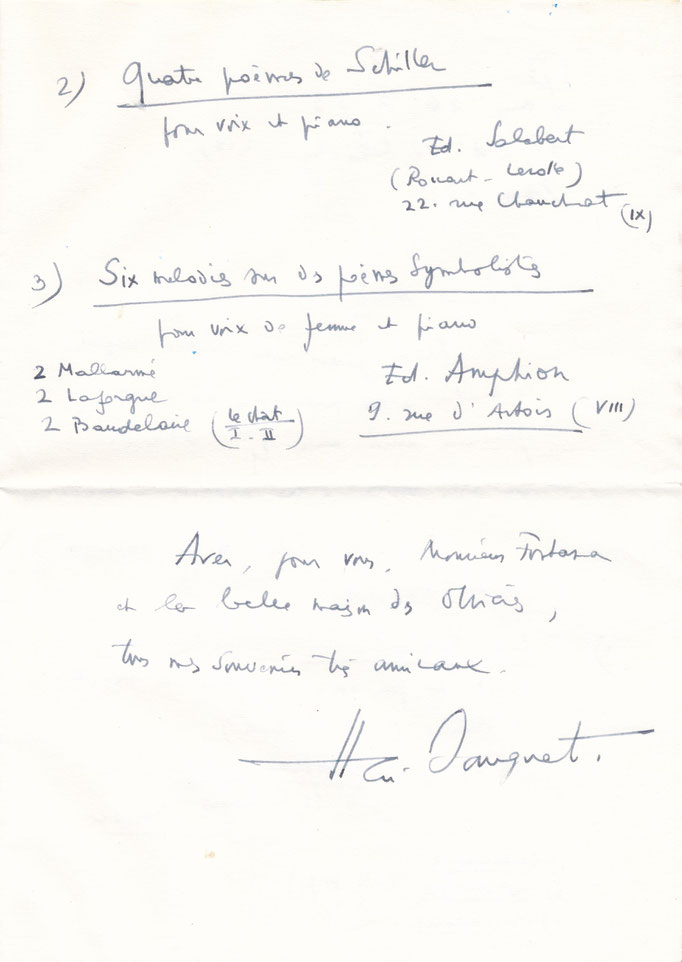 2) Quatre poèmes de Schiller
pour voix et piano.
Ed. Salabert
(Rouart-Lerolle)
22. rue Chauchat (IX)
3) Six mélodies sur des poèmes Symbolistes
pour voix de femme et piano
2 Mallarmé
2 Laforgue
2 Baudelaire (Le chat I - II)
Ed. Amphion
9. rue d'Artois (VIII)
Avec, pour vous, Monsieur Fontana
et la belle maison des
tous mes souvenirs très amicaux.
Henri Sauguet.